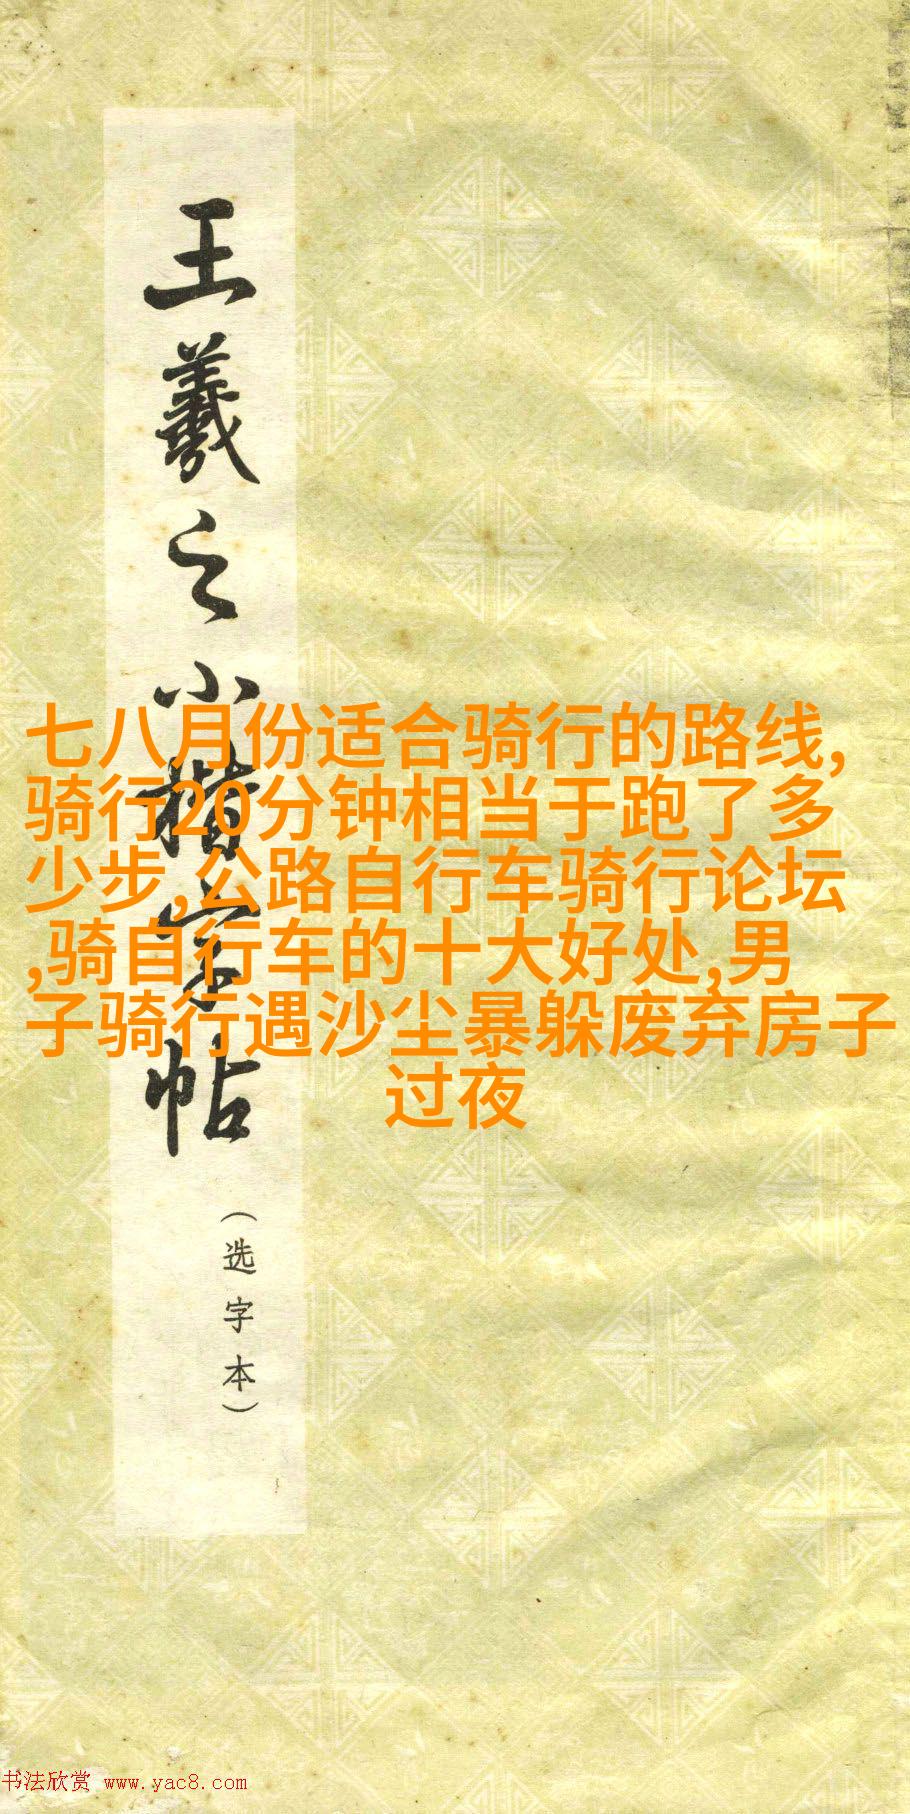 王羲之小楷字帖
(选字本)
七八月份适合骑行的路线,
骑行20分钟相当于跑了多
少步,公路自行车骑行论坛
,骑自行车的十大好处,男
子骑行遇沙尘暴躲废弃房子
过夜
书法欣赏 www.yac8.com